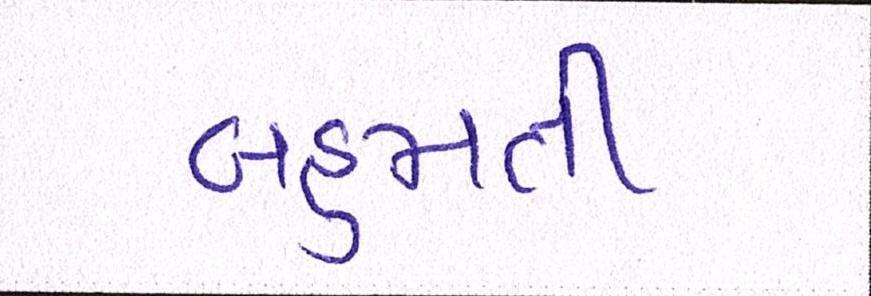 બહુમતી